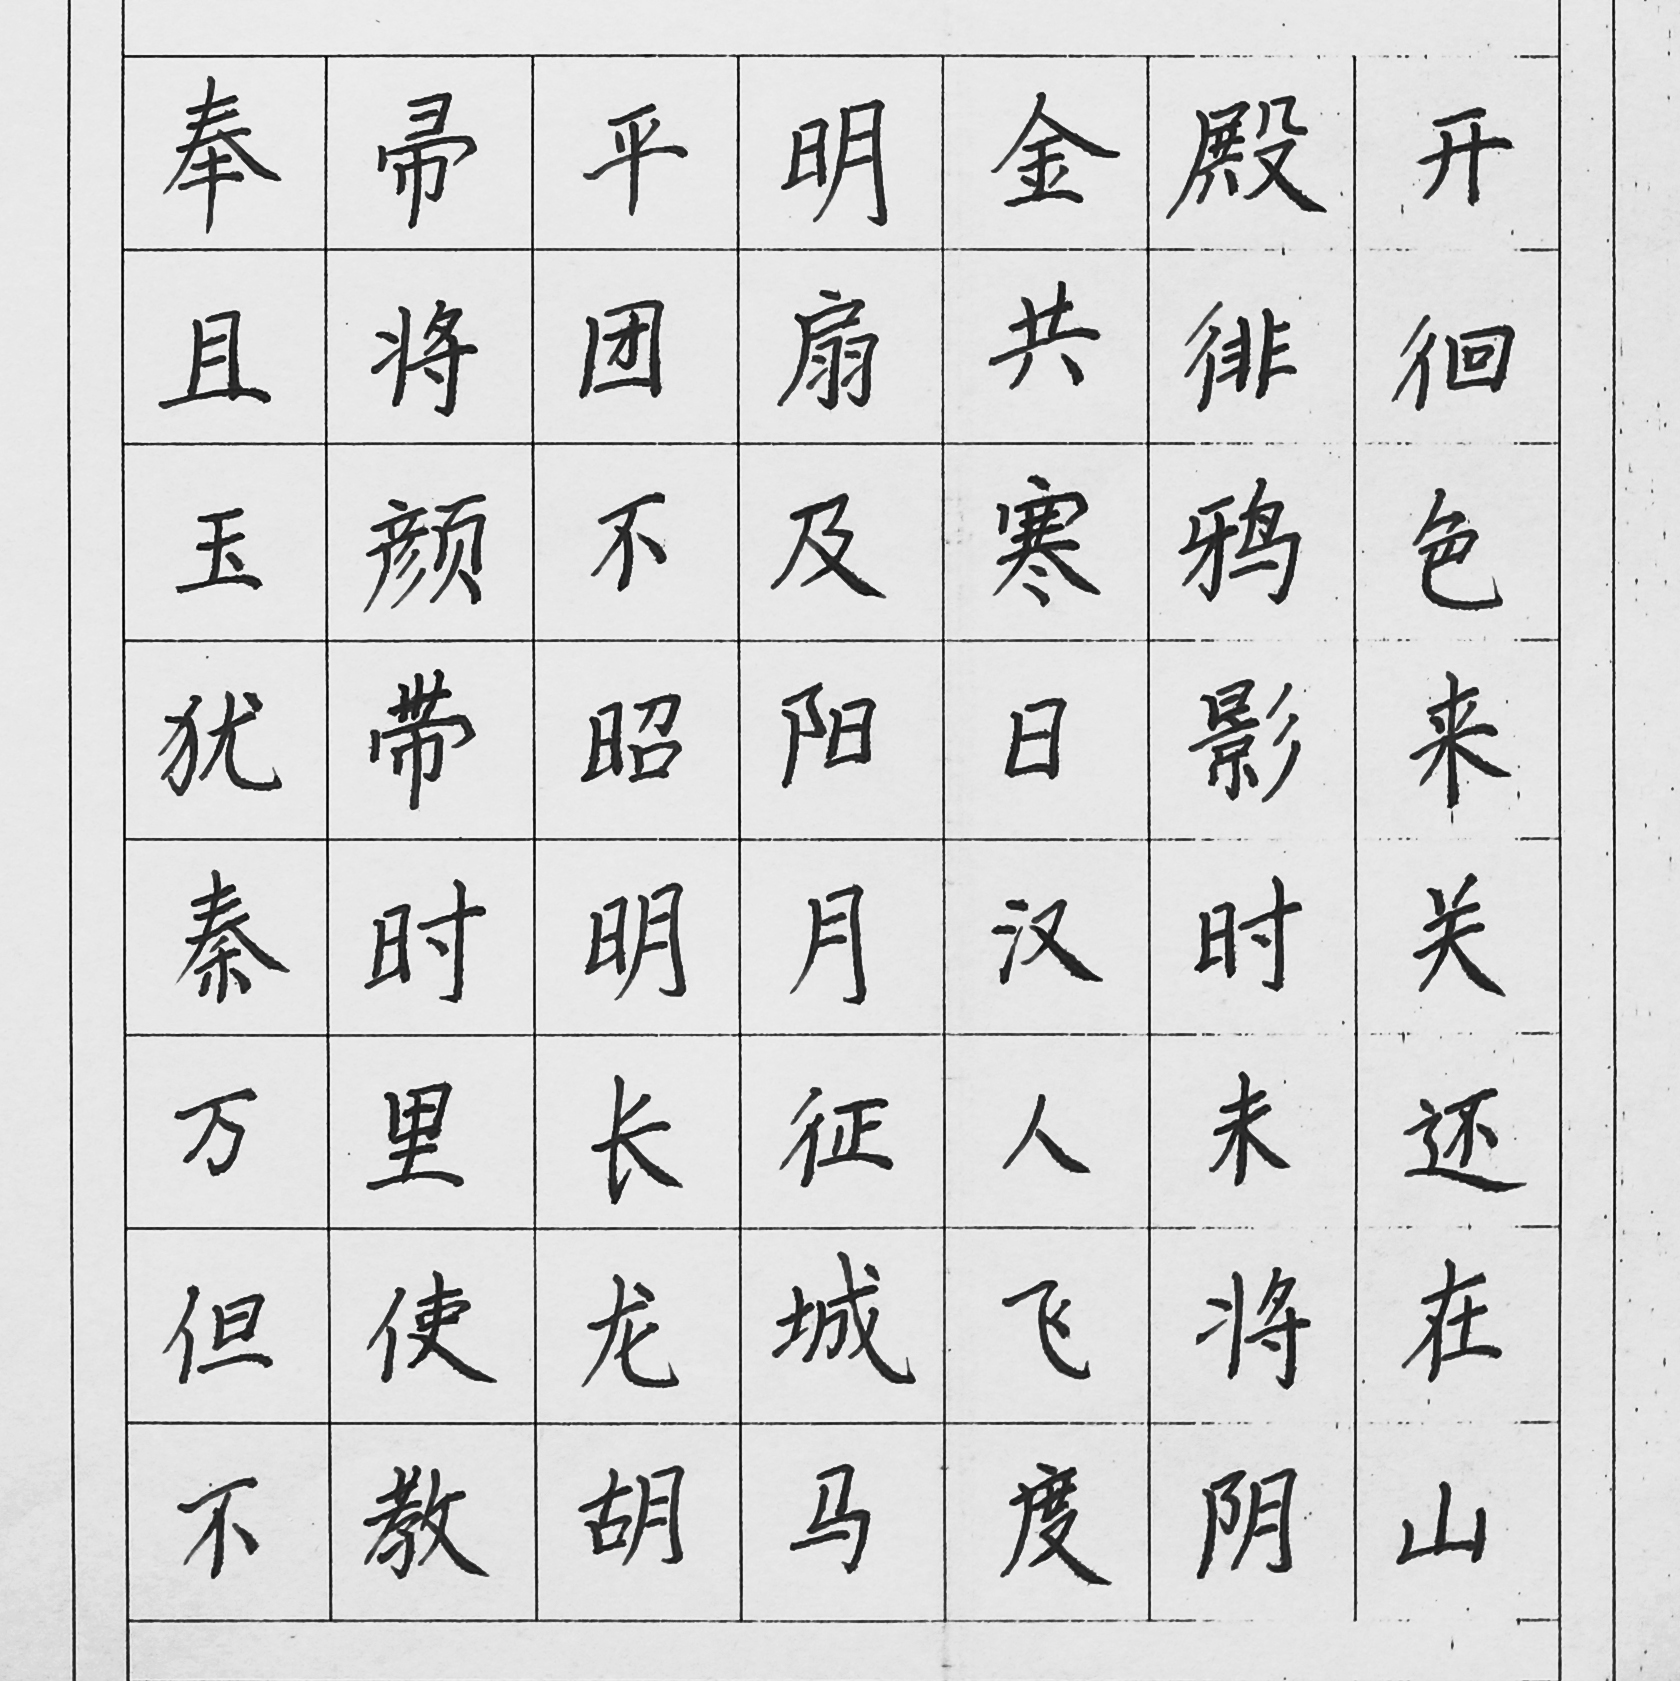 奉帚平明金殿开
且将团扇共徘徊
玉颜不及寒鸦色
犹带昭阳日影来
秦时明月汉时关
万里长征人未还
但使龙城飞将在
不教胡马度阴山